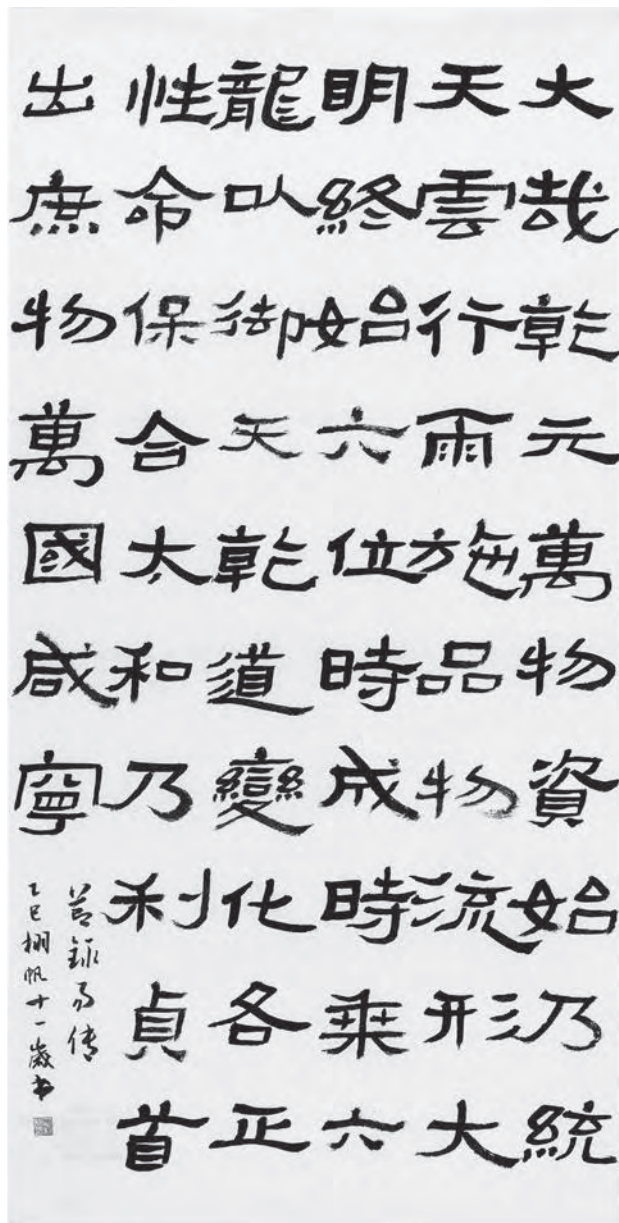 大哉乾元萬物資始乃統
天雲行雨施品物流形大
明終始六位時成時乘六
龍以御天乾道變化各正
性命保合太和乃利貞首
出庶物萬國咸寧
節錄易传
乙巳栩帆十一歲書